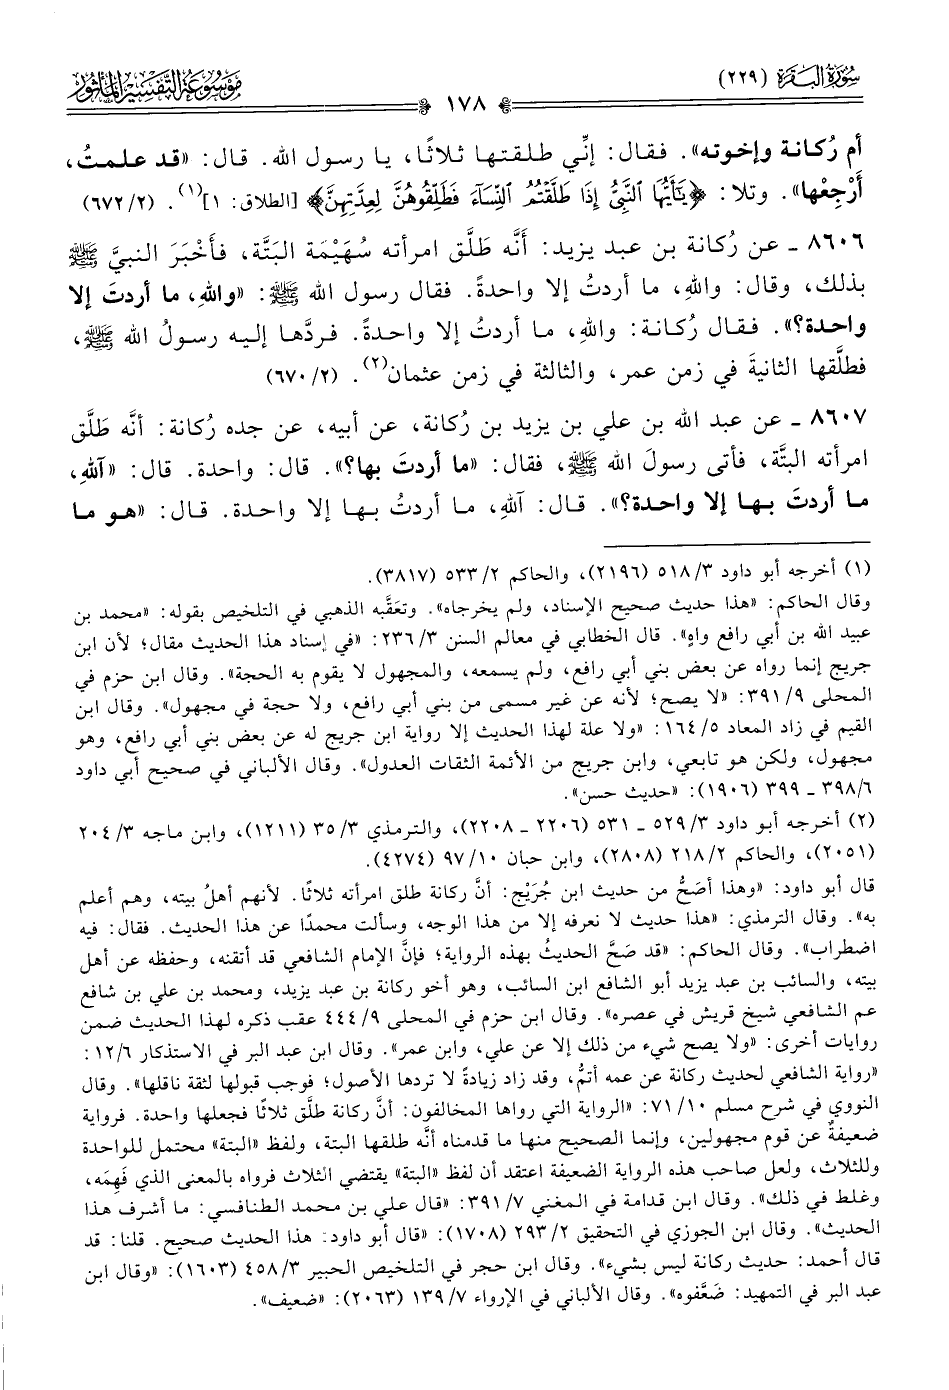 سُورَةُ البَقَرَة (٢٢٩)
مَوْسُوعَةُ التَّفْسِيرِ المَأْثُورِ
١٧٨
أم رُكانة وإخوته». فقال: إنِّي طلقتها ثلاثًا، يا رسول الله. قال: «قد علمتُ،
أَرْجِعْها». وتلا: ﴿يَٰٓأَيُّهَا ٱلنَّبِىُّ إِذَا طَلَّقْتُمُ ٱلنِّسَآءَ فَطَلِّقُوهُنَّ لِعِدَّتِهِنَّ﴾ [الطلاق: ١](١). (٢/ ٦٧٢)
٨٦٠٦ ـ عن رُكانة بن عبد يزيد: أنَّه طَلَّق امرأته سُهَيْمة البَتَّة، فأخْبَرَ النبيَّ ﷺ
بذلك، وقال: واللهِ، ما أردتُ إلا واحدةً. فقال رسول الله ﷺ: «واللهِ، ما أردتَ إلا
واحدة؟». فقال رُكانة: واللهِ، ما أردتُ إلا واحدةً. فردَّها إليه رسولُ الله ﷺ،
فطلَّقها الثانيةَ في زمن عمر، والثالثة في زمن عثمان(٢). (٢/ ٦٧٠)
٨٦٠٧ ـ عن عبد الله بن علي بن يزيد بن رُكانة، عن أبيه، عن جده رُكانة: أنَّه طَلَّق
امرأته البتَّة، فأتى رسولَ الله ﷺ، فقال: «ما أردتَ بها؟». قال: واحدة. قال: «آللهِ،
ما أردتَ بها إلا واحدة؟». قال: آللهِ، ما أردتُ بها إلا واحدة. قال: «هو ما
(١) أخرجه أبو داود ٣/ ٥١٨ (٢١٩٦)، والحاكم ٢/ ٥٣٣ (٣٨١٧).
وقال الحاكم: «هذا حديث صحيح الإسناد، ولم يخرجاه». وتعَقَّبه الذهبي في التلخيص بقوله: «محمد بن
عبيد الله بن أبي رافع واهٍ». قال الخطابي في معالم السنن ٣/ ٢٣٦: «في إسناد هذا الحديث مقال؛ لأن ابن
جريج إنما رواه عن بعض بني أبي رافع، ولم يسمعه، والمجهول لا يقوم به الحجة». وقال ابن حزم في
المحلى ٩/ ٣٩١: «لا يصح؛ لأنه عن غير مسمى من بني أبي رافع، ولا حجة في مجهول». وقال ابن
القيم في زاد المعاد ٥/ ١٦٤: «ولا علة لهذا الحديث إلا رواية ابن جريج له عن بعض بني أبي رافع، وهو
مجهول، ولكن هو تابعي، وابن جريج من الأئمة الثقات العدول». وقال الألباني في صحيح أبي داود
٦/ ٣٩٨ ـ ٣٩٩ (١٩٠٦): «حديث حسن».
(٢) أخرجه أبو داود ٣/ ٥٢٩ ـ ٥٣١ (٢٢٠٦ ـ ٢٢٠٨)، والترمذي ٣/ ٣٥ (١٢١١)، وابن ماجه ٣/ ٢٠٤
(٢٠٥١)، والحاكم ٢/ ٢١٨ (٢٨٠٨)، وابن حبان ١٠/ ٩٧ (٤٢٧٤).
قال أبو داود: «وهذا أصَحُّ من حديث ابن جُرَيْج: أنَّ ركانة طلق امرأته ثلاثًا. لأنهم أهلُ بيته، وهم أعلم
به». وقال الترمذي: «هذا حديث لا نعرفه إلا من هذا الوجه، وسألت محمدًا عن هذا الحديث. فقال: فيه
اضطراب». وقال الحاكم: «قد صَحَّ الحديثُ بهذه الرواية؛ فإنَّ الإمام الشافعي قد أتقنه، وحفظه عن أهل
بيته، والسائب بن عبد يزيد أبو الشافع ابن السائب، وهو أخو ركانة بن عبد يزيد، ومحمد بن علي بن شافع
عم الشافعي شيخ قريش في عصره». وقال ابن حزم في المحلى ٩/ ٤٤٤ عقب ذكره لهذا الحديث ضمن
روايات أخرى: «ولا يصح شيء من ذلك إلا عن علي، وابن عمر». وقال ابن عبد البر في الاستذكار ٦/ ١٢:
«رواية الشافعي لحديث ركانة عن عمه أتمُّ، وقد زاد زيادةً لا تردها الأصول؛ فوجب قبولها لثقة ناقلها». وقال
النووي في شرح مسلم ١٠/ ٧١: «الرواية التي رواها المخالفون: أنَّ ركانة طلَّق ثلاثًا فجعلها واحدة. فرواية
ضعيفةٌ عن قوم مجهولين، وإنما الصحيح منها ما قدمناه أنَّه طلقها البتة، ولفظ «البتة» محتمل للواحدة
وللثلاث، ولعل صاحب هذه الرواية الضعيفة اعتقد أن لفظ «البتة» يقتضي الثلاث فرواه بالمعنى الذي فَهِمَه،
وغلط في ذلك». وقال ابن قدامة في المغني ٧/ ٣٩١: «قال علي بن محمد الطنافسي: ما أشرف هذا
الحديث». وقال ابن الجوزي في التحقيق ٢/ ٢٩٣ (١٧٠٨): «قال أبو داود: هذا الحديث صحيح. قلنا: قد
قال أحمد: حديث ركانة ليس بشيء». وقال ابن حجر في التلخيص الحبير ٣/ ٤٥٨ (١٦٠٣): «وقال ابن
عبد البر في التمهيد: ضَعَّفوه». وقال الألباني في الإرواء ٧/ ١٣٩ (٢٠٦٣): «ضعيف».